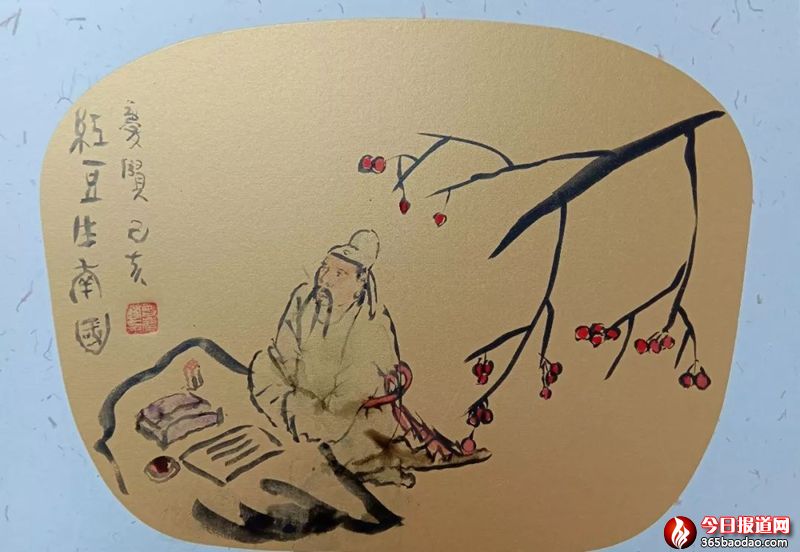 紅豆生南國
賢己亥
今日报道网
365baodao.com